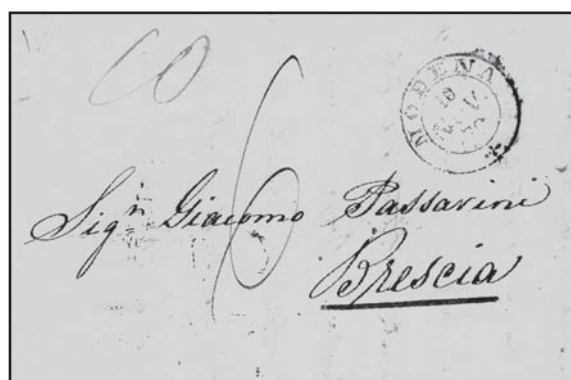 60
MODENA
6
Sig.n Giacomo Passarini
Brescia